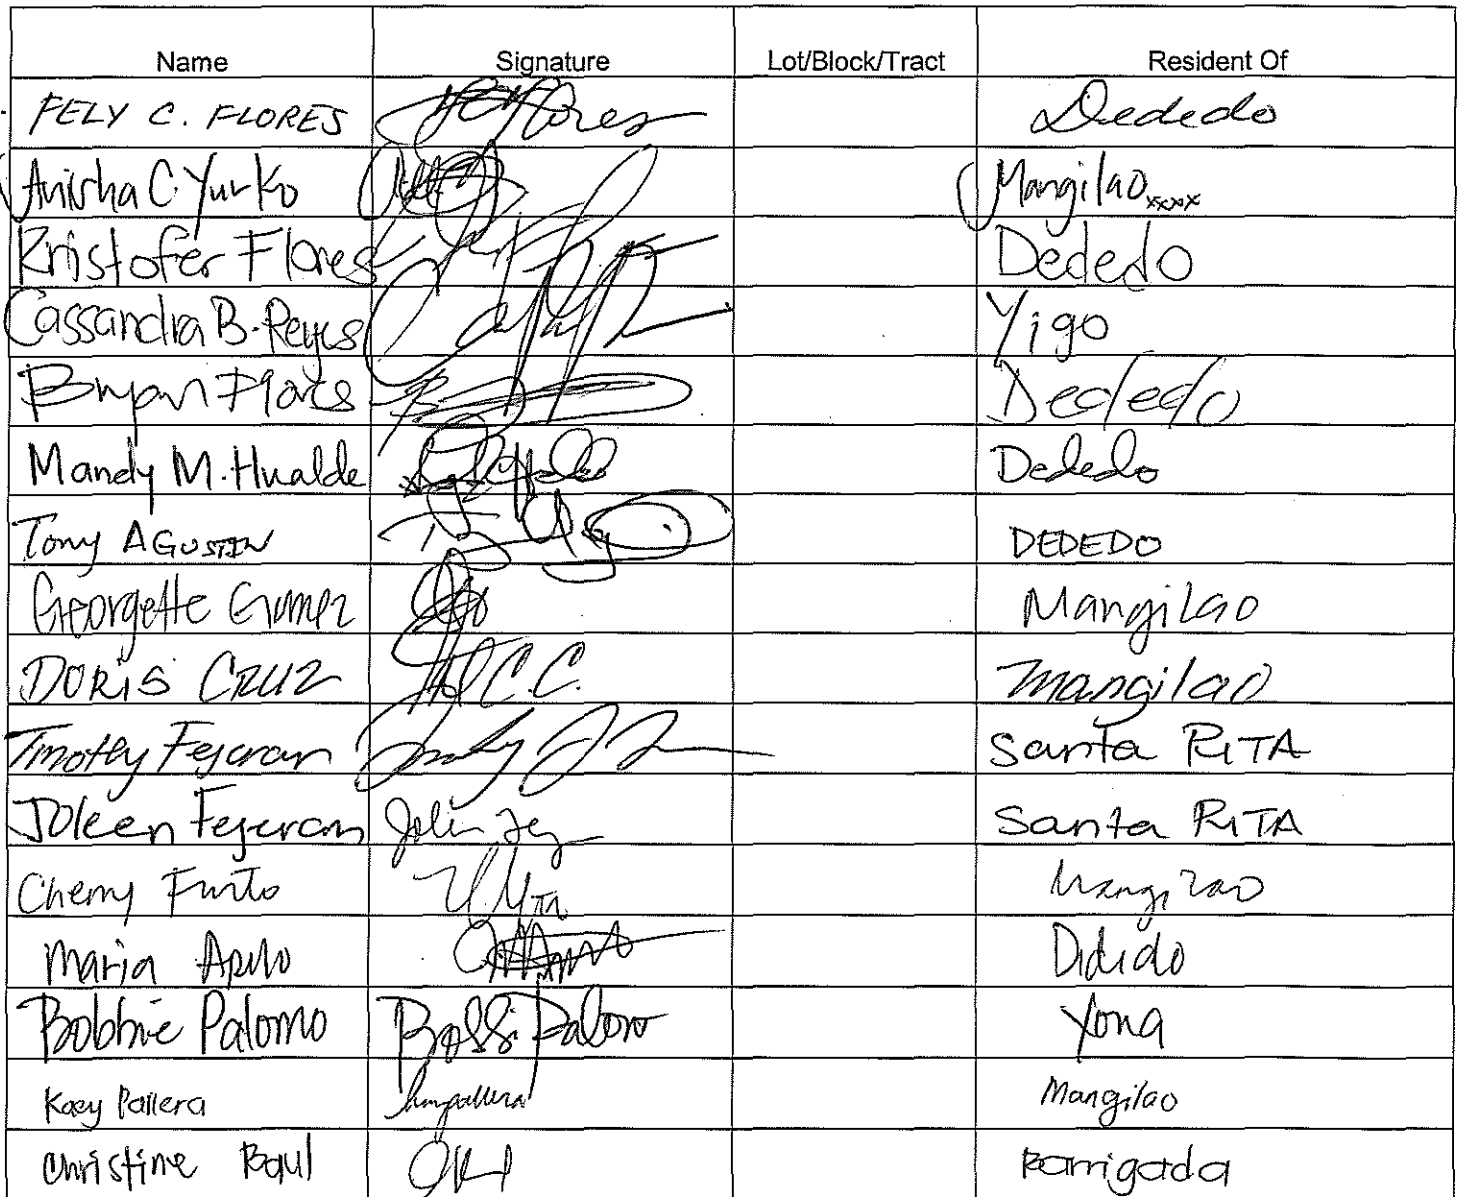 Name Signature Lot/Block/Tract Resident Of
FELY C. FLORES Dededo
Anisha C Yurko Mangilao xxxx
Kristofer Flores Dededo
Cassandra B. Reyes Yigo
Bryan Flores Dededo
Mandy M. Hualde Dededo
Tony AGUSTIN DEDEDO
Georgette Gomez Mangilao
DORIS CRUZ C.C. Mangilao
Timothy Fejeran Santa RITA
Joleen Fejeran Santa RITA
Cherry Mangilao
Maria Dededo
Bobbie Palomo Yona
Kaey Pallera Mangilao
Christine Baul Barrigada